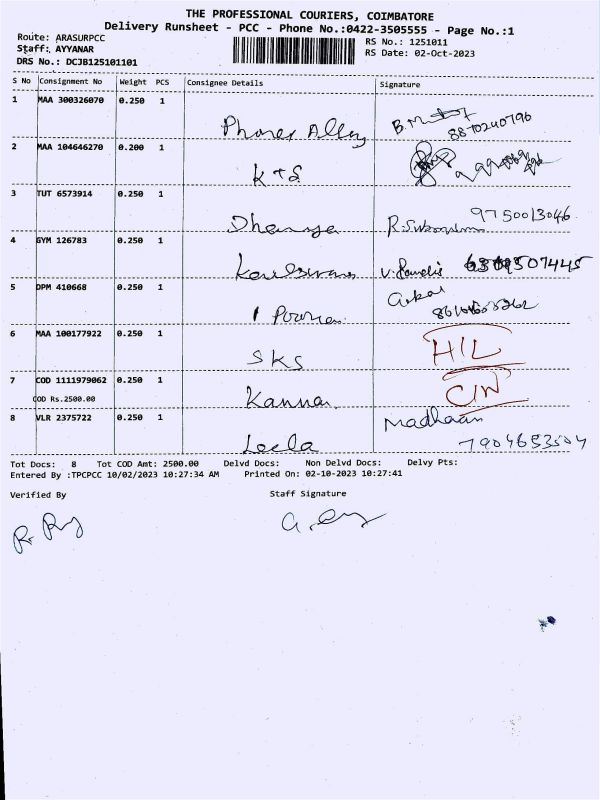 THE PROFESSIONAL COURIERS, COIMBATORE
Delivery Runsheet - PCC - Phone No.:0422-3505555 - Page No.:1
Route: ARASURPCC
RS No.: 1251011
Staff: AYYANAR
RS Date: 02-Oct-2023
DRS No.: DCJB125101101
S No Consignment No Weight PCS Consignee Details Signature
1 MAA 300326070 0.250 1
8870240796
2 MAA 104646270 0.200 1
KTS
3 TUT 6573914 0.250 1
9750013046
4 GYM 126783 0.250 1
5 DPM 410668 0.250 1
6 MAA 100177922 0.250 1
SKS HIL
7 COD 1111979062 0.250 1
COD Rs.2500.00
Kannan
8 VLR 2375722 0.250 1
Madhaan
Leela 7904653504
Tot Docs: 8 Tot COD Amt: 2500.00 Delvd Docs: Non Delvd Docs: Delvy Pts:
Entered By :TPCPCC 10/02/2023 10:27:34 AM Printed On: 02-10-2023 10:27:41
Verified By Staff Signature